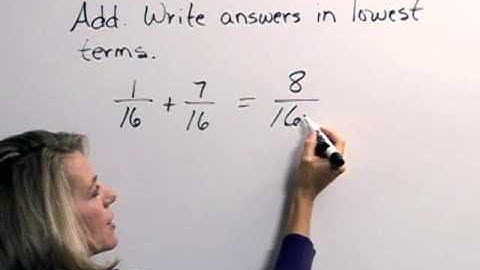 Add. Write answers in lowest
terms.
1/16 + 7/16 = 8/16